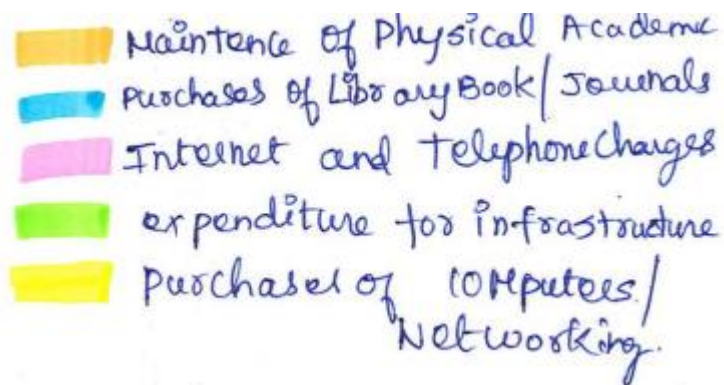 Maintence of Physical Academic
Purchases of Library Book/Journals
Internet and Telephone Charges
expenditure for infrastructure
purchases of computers/
Networking.